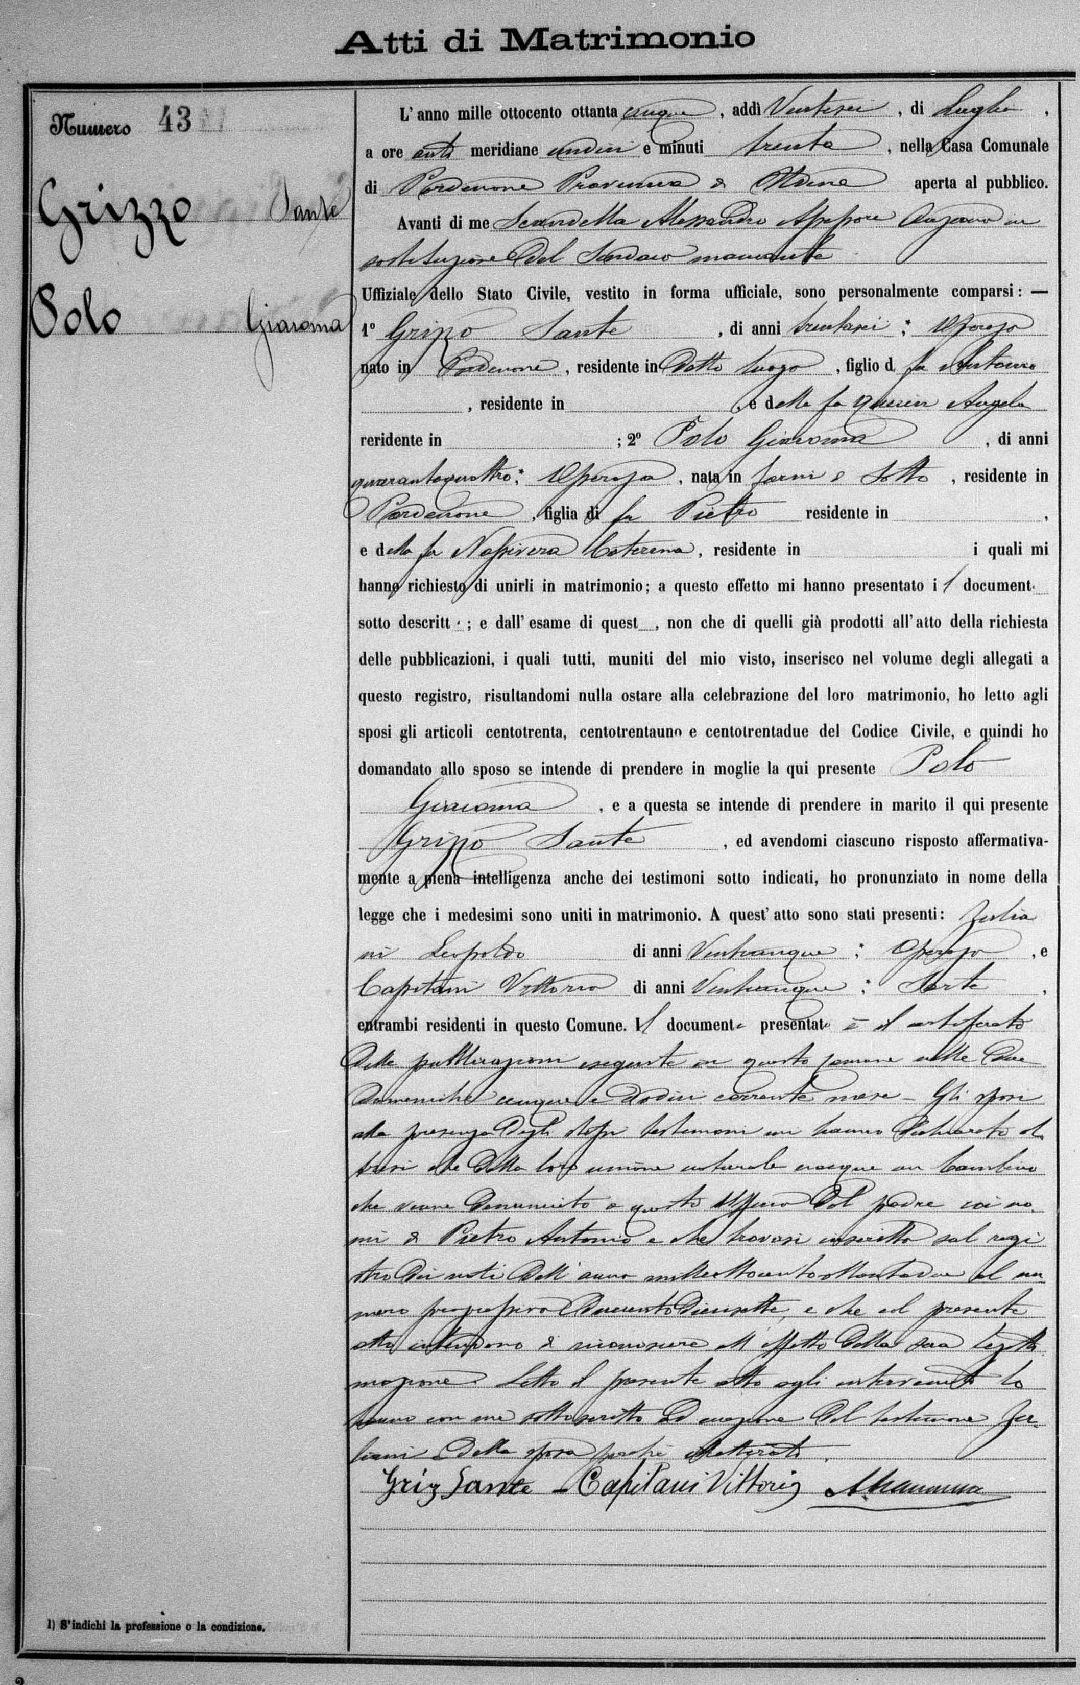 Atti di Matrimonio
Numero 43
Grizzo Sante
Polo Giacoma
L'anno mille ottocento ottanta cinque, addì Ventisei, di Luglio,
a ore anti meridiane undici e minuti trenta, nella Casa Comunale
di Pordenone Provincia di Udine aperta al pubblico.
Avanti di me Scandella Alessandro Assessore Anziano in
sostituzione del Sindaco mancante
Uffiziale dello Stato Civile, vestito in forma ufficiale, sono personalmente comparsi: —
1º Grizzo Sante, di anni trentasei; Operajo
nato in Pordenone, residente in Detto luogo, figlio d fu Antonio
, residente in , e della fu Querin Angela
reridente in ; 2º Polo Giacoma, di anni
quarantaquattro; Operaja, nata in Forni di Sotto, residente in
Pordenone, figlia di fu Pietro residente in ,
e della fu Nassivera Caterina, residente in i quali mi
hanno richiesto di unirli in matrimonio; a questo effetto mi hanno presentato i l document
sotto descritt ; e dall'esame di quest , non che di quelli già prodotti all'atto della richiesta
delle pubblicazioni, i quali tutti, muniti del mio visto, inserisco nel volume degli allegati a
questo registro, risultandomi nulla ostare alla celebrazione del loro matrimonio, ho letto agli
sposi gli articoli centotrenta, centotrentauno e centotrentadue del Codice Civile, e quindi ho
domandato allo sposo se intende di prendere in moglie la qui presente Polo
Giacoma, e a questa se intende di prendere in marito il qui presente
Grizzo Sante, ed avendomi ciascuno risposto affermativa-
mente a piena intelligenza anche dei testimoni sotto indicati, ho pronunziato in nome della
legge che i medesimi sono uniti in matrimonio. A quest'atto sono stati presenti:
ni Leopoldo di anni Venticinque; Operajo, e
Capitani Vittorio di anni Venticinque; Sarto,
entrambi residenti in questo Comune. Il document presentat è il certificato
delle pubblicazioni eseguite in questo comune nelle due
Domeniche cinque e dodici corrente mese - Gli sposi
alla presenza degli stessi testimoni mi hanno dichiarato al
tresì che dalla loro unione naturale nacque un bambino
che venne denunciato a questo Ufficio dal padre coi no
mi di Pietro Antonio e che trovasi inscritto sul regi
stro dei nati dell'anno milleottocentoottantadue al nu
mero progressivo duecentodiecisette, e che col presente
atto intendono di riconoscere all'effetto della sua legitti
mazione. Letto il presente atto agli intervenuti lo
hanno con me sottoscritto ad eccezione del testimone
liani e della sposa perché illetterati.
Griz Sante - Capitani Vittorio
1) S'indichi la professione o la condizione.